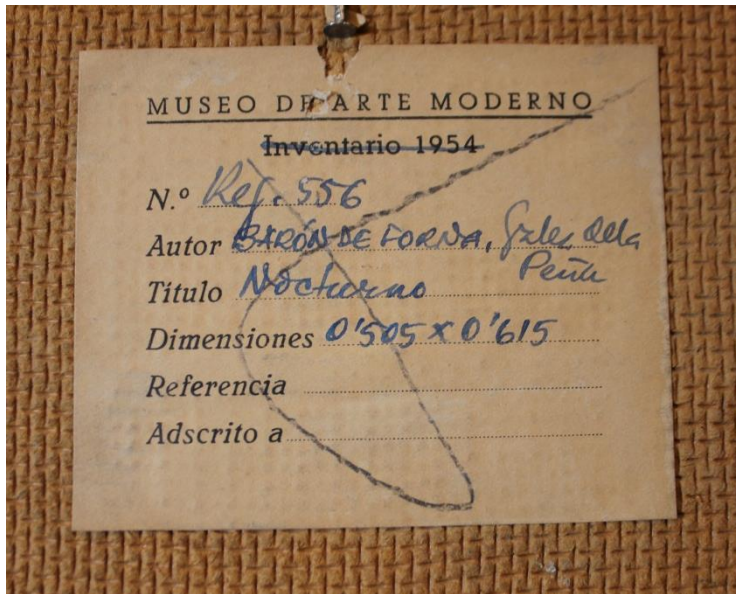 MUSEO DE ARTE MODERNO
Inventario 1954
N.º Reg. 556
Autor BARÓN DE FORNA, Gzlez de la
Peña
Título Nocturno
Dimensiones 0'505 x 0'615
Referencia
Adscrito a